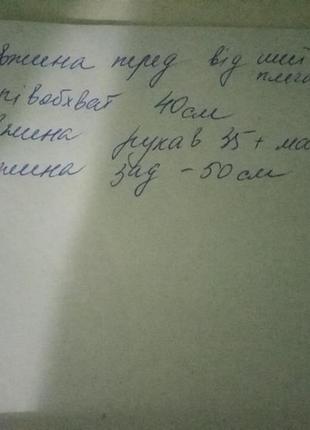 вжина перед від шиї
плеча
півобхват 40см
вжина рукав 35 + ма
жина зад - 50 см